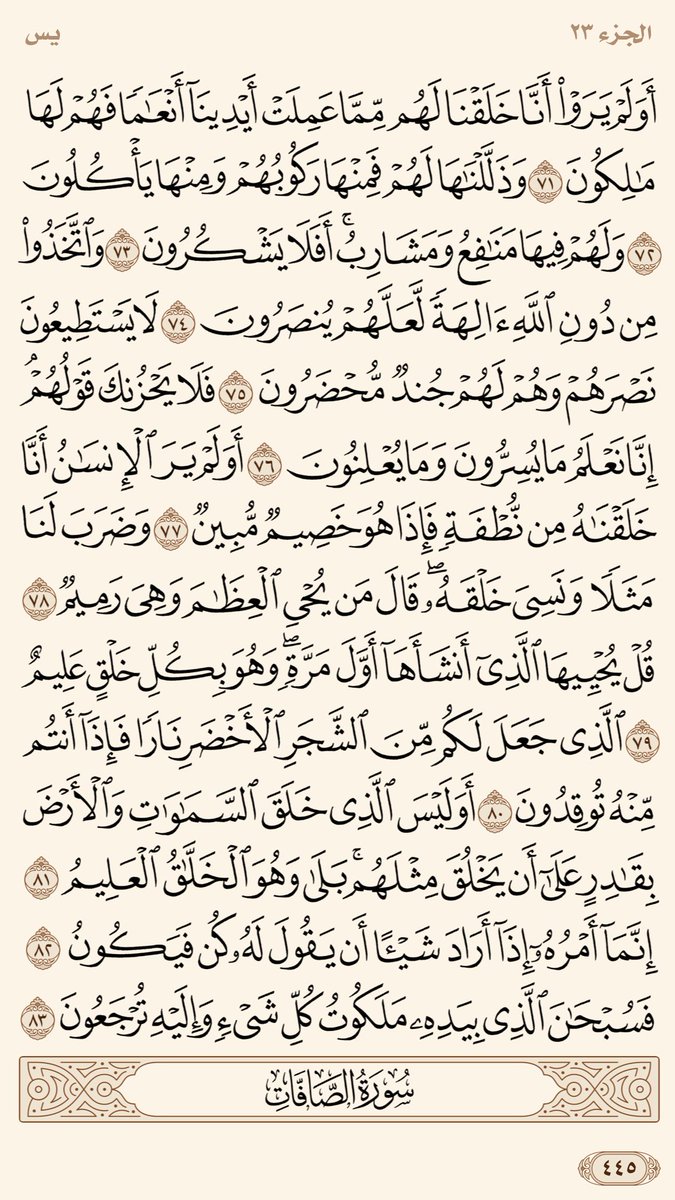 الجزء ٢٣
يس
أَوَلَمْ يَرَوْا۟ أَنَّا خَلَقْنَا لَهُم مِّمَّا عَمِلَتْ أَيْدِينَآ أَنْعَٰمًا فَهُمْ لَهَا
مَٰلِكُونَ ٧١ وَذَلَّلْنَٰهَا لَهُمْ فَمِنْهَا رَكُوبُهُمْ وَمِنْهَا يَأْكُلُونَ
٧٢ وَلَهُمْ فِيهَا مَنَٰفِعُ وَمَشَارِبُ ۚ أَفَلَا يَشْكُرُونَ ٧٣ وَٱتَّخَذُوا۟
مِن دُونِ ٱللَّهِ ءَالِهَةً لَّعَلَّهُمْ يُنصَرُونَ ٧٤ لَا يَسْتَطِيعُونَ
نَصْرَهُمْ وَهُمْ لَهُمْ جُندٌ مُّحْضَرُونَ ٧٥ فَلَا يَحْزُنكَ قَوْلُهُمْ ۘ
إِنَّا نَعْلَمُ مَا يُسِرُّونَ وَمَا يُعْلِنُونَ ٧٦ أَوَلَمْ يَرَ ٱلْإِنسَٰنُ أَنَّا
خَلَقْنَٰهُ مِن نُّطْفَةٍ فَإِذَا هُوَ خَصِيمٌ مُّبِينٌ ٧٧ وَضَرَبَ لَنَا
مَثَلًا وَنَسِىَ خَلْقَهُۥ ۖ قَالَ مَن يُحْىِ ٱلْعِظَٰمَ وَهِىَ رَمِيمٌ ٧٨
قُلْ يُحْيِيهَا ٱلَّذِىٓ أَنشَأَهَآ أَوَّلَ مَرَّةٍ ۖ وَهُوَ بِكُلِّ خَلْقٍ عَلِيمٌ
٧٩ ٱلَّذِى جَعَلَ لَكُم مِّنَ ٱلشَّجَرِ ٱلْأَخْضَرِ نَارًا فَإِذَآ أَنتُم
مِّنْهُ تُوقِدُونَ ٨٠ أَوَلَيْسَ ٱلَّذِى خَلَقَ ٱلسَّمَٰوَٰتِ وَٱلْأَرْضَ
بِقَٰدِرٍ عَلَىٰٓ أَن يَخْلُقَ مِثْلَهُم ۚ بَلَىٰ وَهُوَ ٱلْخَلَّٰقُ ٱلْعَلِيمُ ٨١
إِنَّمَآ أَمْرُهُۥٓ إِذَآ أَرَادَ شَيْـًٔا أَن يَقُولَ لَهُۥ كُن فَيَكُونُ ٨٢
فَسُبْحَٰنَ ٱلَّذِى بِيَدِهِۦ مَلَكُوتُ كُلِّ شَىْءٍ وَإِلَيْهِ تُرْجَعُونَ ٨٣
سُورَةُ الصَّافَّاتِ
٤٤٥